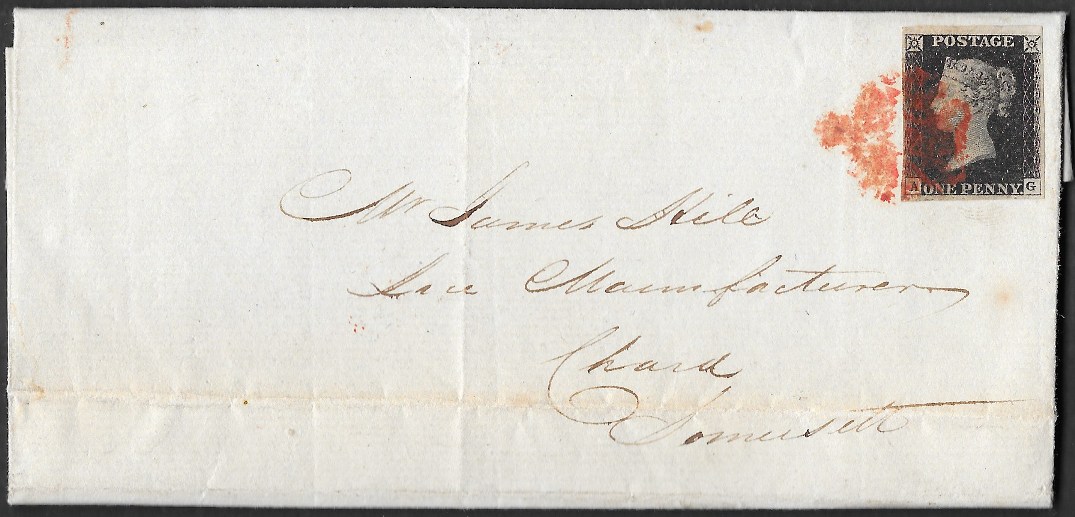 POSTAGE
A ONE PENNY G
Mr James Hill
Lace Manufacturer
Chard
Somersett